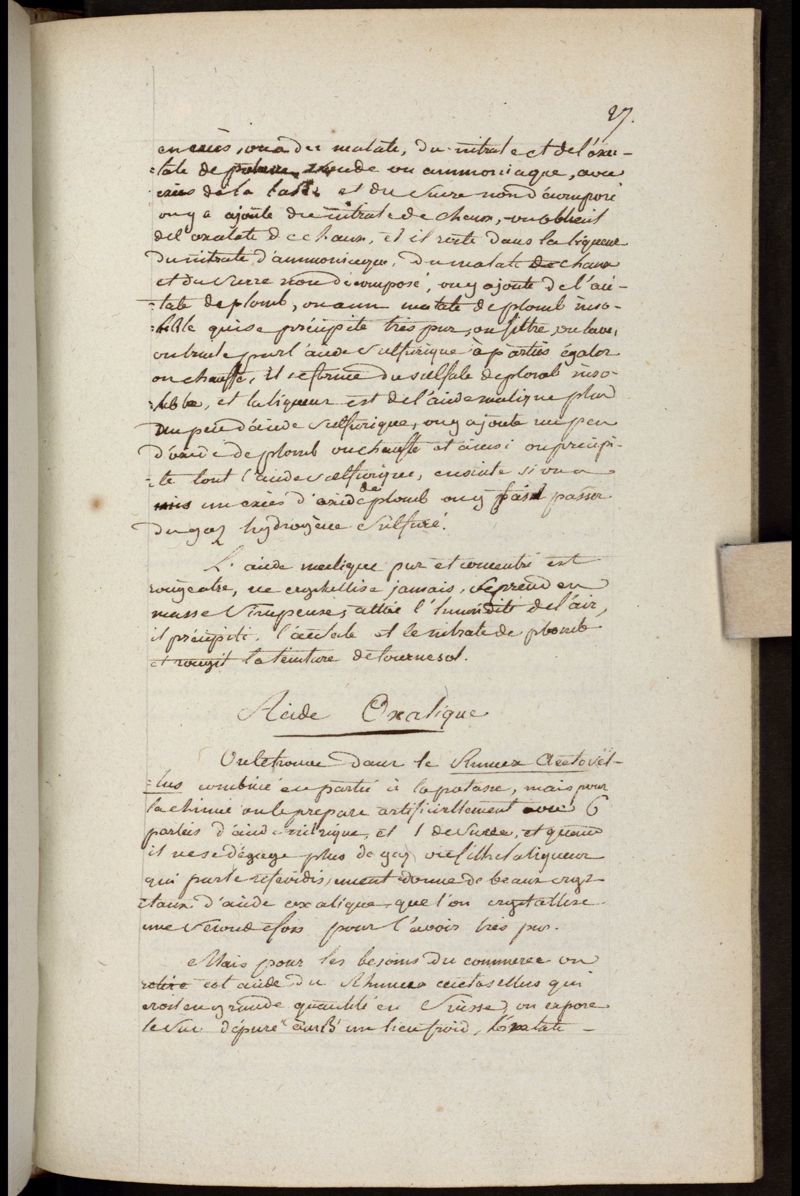 27.
en excès, on a du malate, du nitrate et de l'oxa-
-late de potasse, soude ou ammoniaque, avec
excès de la base et du sucre non décomposé
on y a ajoute du nitrate de chaux, on obtient
de l'oxalate de chaux, et il reste dans la liqueur
du nitrate d'ammoniaque, du malate de chaux
et du sucre non décomposé, on y ajoute de l'acé-
-tate de plomb, on a un malate de plomb inso-
-luble qui se précipite très pur, on filtre, on lave,
on traite par l'acide sulfurique à parties égales
on chauffe, il se forme du sulfate de plomb inso-
-luble, et la liqueur est de l'acide malique plus
un peu d'acide sulfurique, on y ajoute un peu
d'oxide de plomb on chauffe et ainsi on précipi-
-te tout l'acide sulfurique, ensuite si on a
mis un excès d'oxide de plomb on y fait passer
du gaz hydrogène sulfuré.
L'acide malique pur et concentré est
rougeatre, ne crystallise jamais, se prend en
masse sirupeuse, attire l'humidité de l'air,
il précipite l'acétate et le nitrate de plomb
et rougit la teinture de tournesol.
Acide Oxalique
On le trouve dans le Rumex Acetosel-
-lus combiné en partie à la potasse, mais pour
la chimie on le prepare artificiellement avec 6
parties d'acide nitrique, et 1 de sucre, et quand
il ne se dégage plus de gaz on filtre la liqueur
qui par le refroidissement donne de beaux crys-
-taux d'acide oxalique que l'on crystallise
une seconde fois pour l'avoir très pur.
Mais pour les besoins du commerce on
retire cet acide du Rhumex acetosellus qui
croit en grande quantité en Suisse, on expose
le suc dépuré dans un lieu froid, l'oxalate -